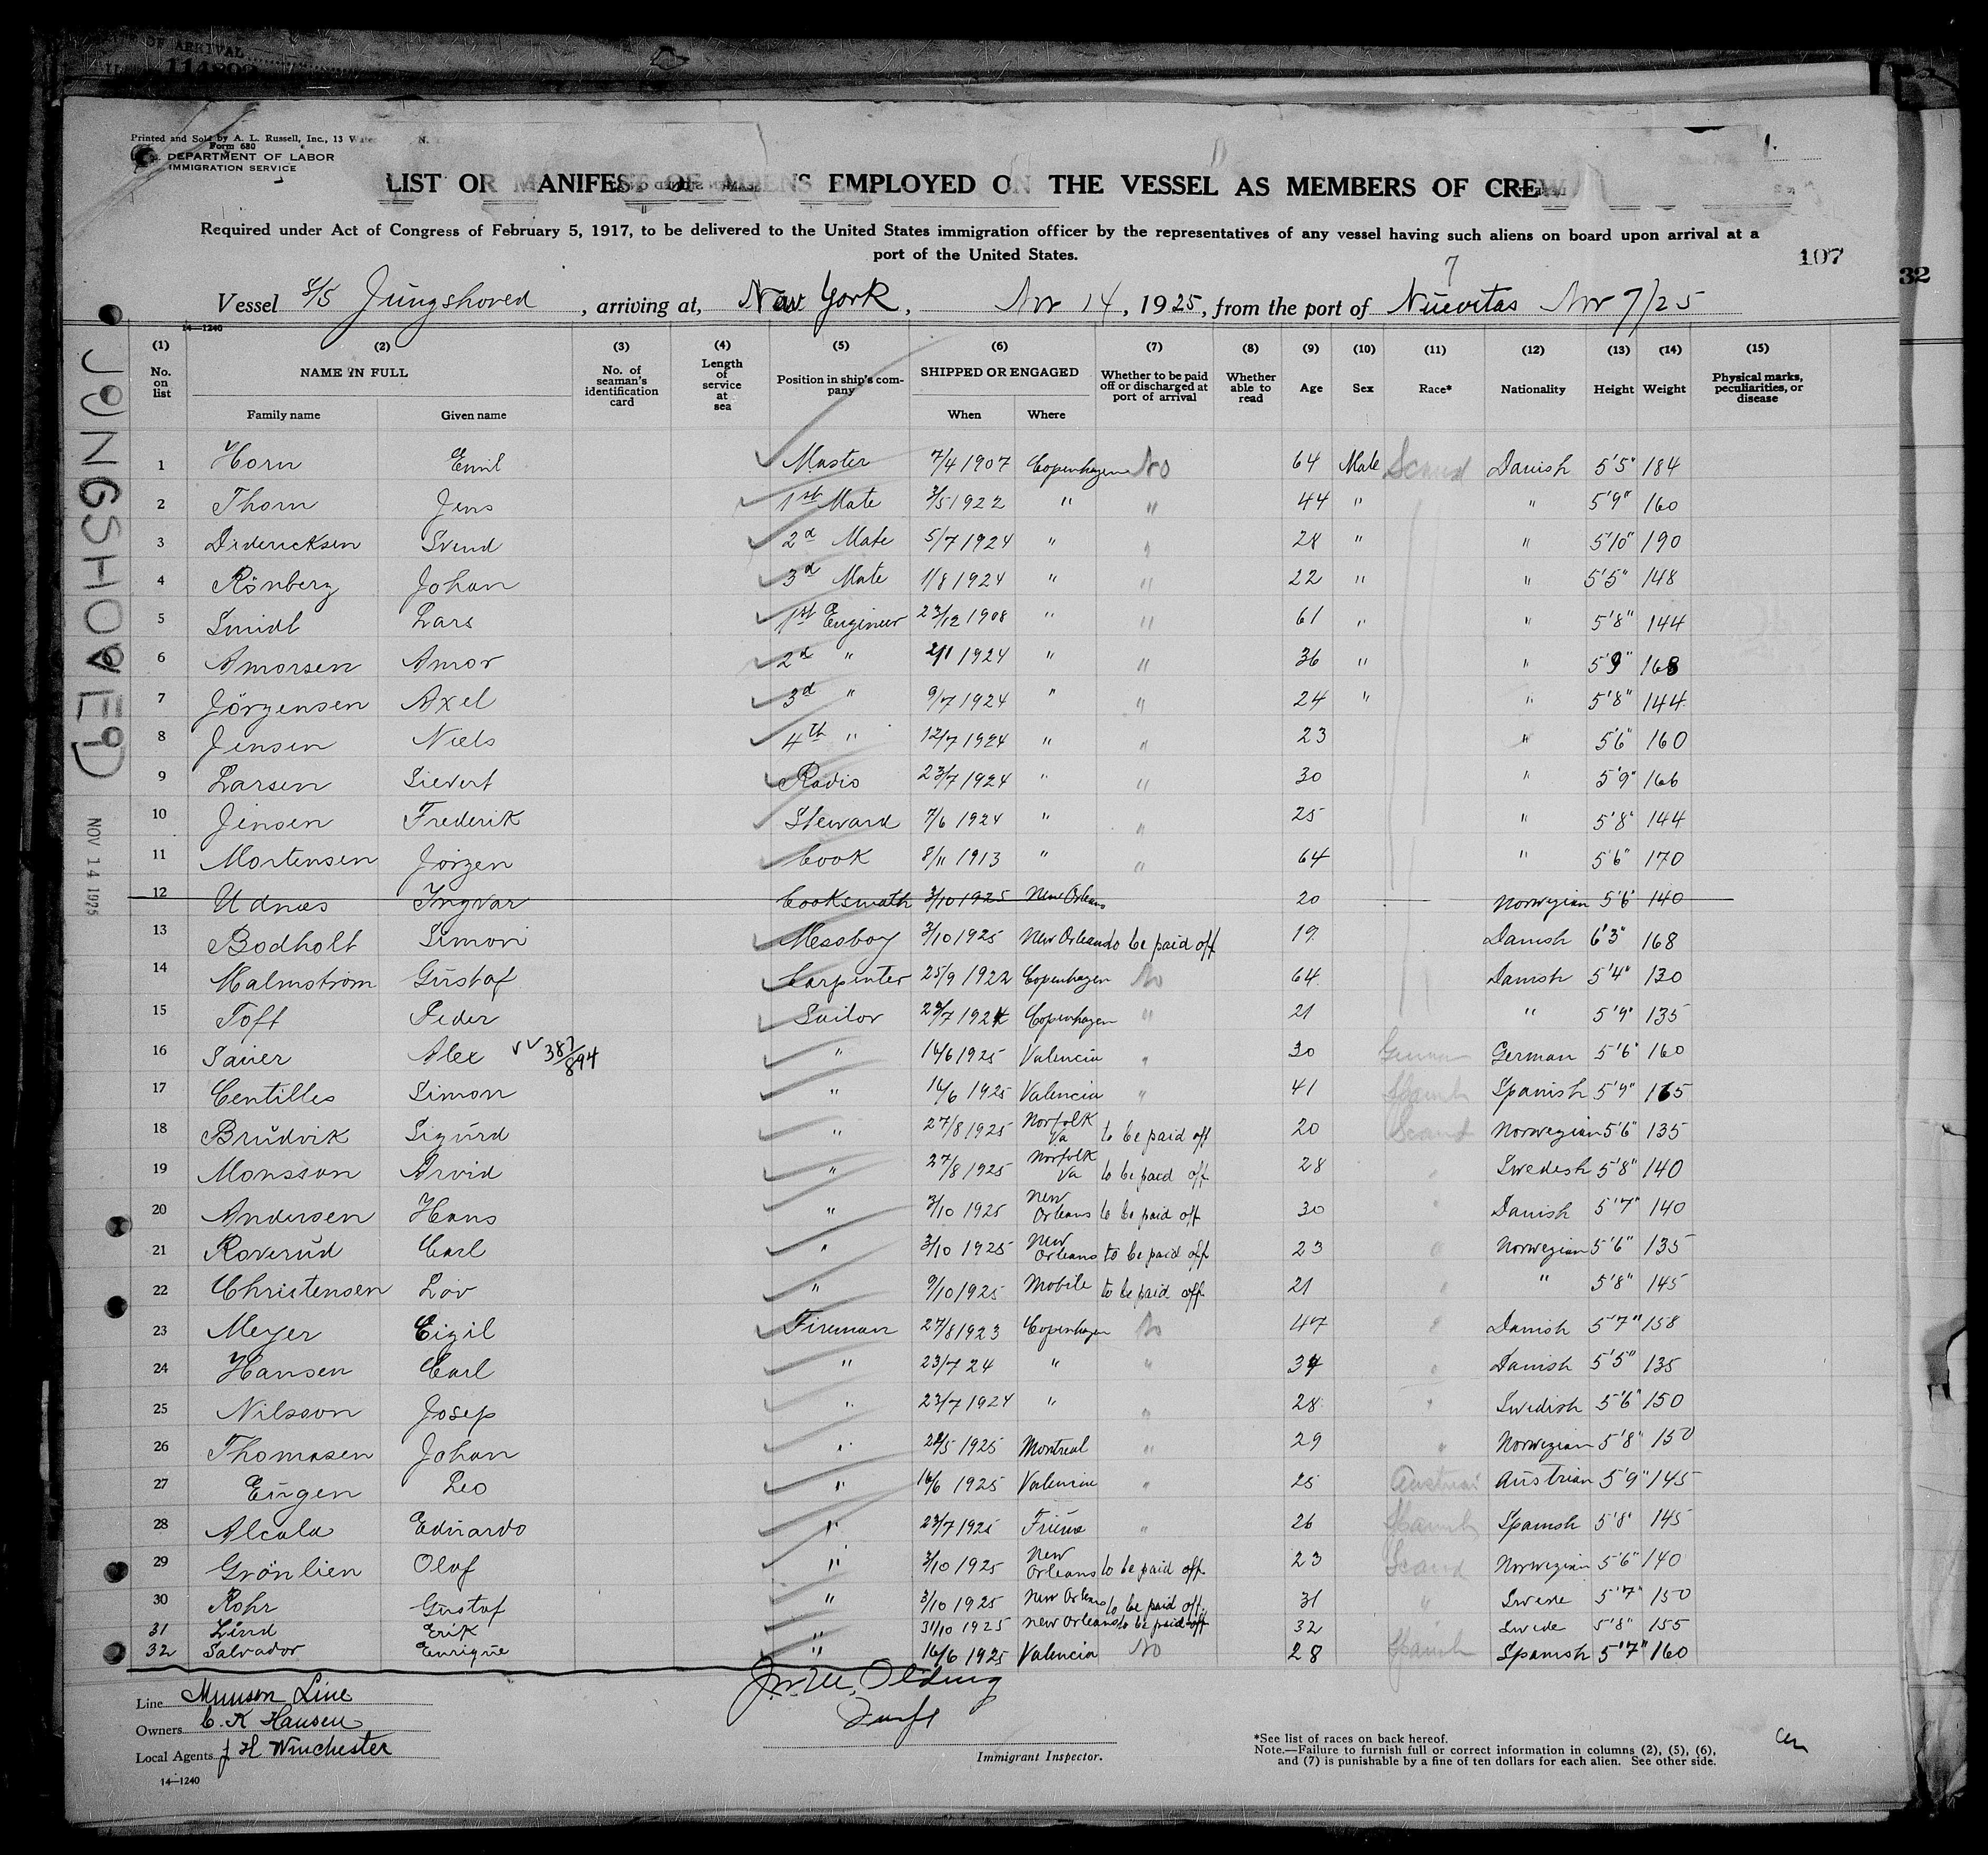 OF ARRIVAL
Printed and Sold by A. L. Russell, Inc., 13 Water N.
Form 680
DEPARTMENT OF LABOR
IMMIGRATION SERVICE
LIST OR MANIFEST OF ALIENS EMPLOYED ON THE VESSEL AS MEMBERS OF CREW
Required under Act of Congress of February 5, 1917, to be delivered to the United States immigration officer by the representatives of any vessel having such aliens on board upon arrival at a
port of the United States.
107
32
Vessel S/S Jungshoved, arriving at, New York, Nov 14, 1925, from the port of Nuevitas Nov 7/25
7
14—1240
JUNGSHOVED
NOV 14 1925
(1) (2) (3) (4) (5) (6) (7) (8) (9) (10) (11) (12) (13) (14) (15)
No. on list NAME IN FULL No. of seaman's identification card Length of service at sea Position in ship's company SHIPPED OR ENGAGED Whether to be paid off or discharged at port of arrival Whether able to read Age Sex Race* Nationality Height Weight Physical marks, peculiarities, or disease
Family name Given name When Where
1 Horn Emil Master 7/4 1907 Copenhagen No 64 Male Scand Danish 5'5" 184
2 Thorn Jens 1st Mate 3/5 1922 " " 44 " " 5'9" 160
3 Didericksen Svend 2d Mate 5/7 1924 " " 28 " " 5'10" 190
4 Rönberg Johan 3d Mate 1/8 1924 " " 22 " " 5'5" 148
5 Smidt Lars 1st Engineer 23/12 1908 " " 61 " " 5'8" 144
6 Amorsen Amor 2d " 2/1 1924 " " 36 " " 5'9" 168
7 Jörgensen Axel 3d " 9/7 1924 " " 24 " " 5'8" 144
8 Jensen Niels 4th " 12/7 1924 " " 23 " 5'6" 160
9 Larsen Sievert Radio 23/7 1924 " " 30 " 5'9" 166
10 Jensen Frederik Steward 7/6 1924 " " 25 " 5'8" 144
11 Mortensen Jörgen Cook 8/11 1913 " " 64 " 5'6" 170
12 Udnæs Ingvar Cooksmath 3/10 1925 New Orleans 20 Norwegian 5'6" 140
13 Bodholt Simon Messboy 3/10 1925 New Orleans to be paid off 19 Danish 6'3" 168
14 Malmstrom Gustaf Carpenter 25/9 1922 Copenhagen No 64 Danish 5'4" 130
15 Toft Peder Sailor 23/7 1924 Copenhagen " 21 " 5'9" 135
16 Sauer Alex 387/894 " 16/6 1925 Valencia " 30 German German 5'6" 160
17 Centilles Simon " 16/6 1925 Valencia " 41 Spanish Spanish 5'9" 165
18 Brudvik Sigurd " 27/8 1925 Norfolk Va to be paid off 20 Scand Norwegian 5'6" 135
19 Monsson Arvid " 27/8 1925 Norfolk Va to be paid off 28 " Swedish 5'8" 140
20 Andersen Hans " 3/10 1925 New Orleans to be paid off 30 " Danish 5'7" 140
21 Roverud Carl " 3/10 1925 New Orleans to be paid off 23 " Norwegian 5'6" 135
22 Christensen Lov " 9/10 1925 Mobile to be paid off 21 " " 5'8" 145
23 Meyer Eigil Fireman 27/8 1923 Copenhagen No 47 " Danish 5'7" 158
24 Hansen Carl " 23/7 24 " " 34 " Danish 5'5" 135
25 Nilsson Josep " 23/7 1924 " " 28 " Swedish 5'6" 150
26 Thomasen Johan " 22/5 1925 Montreal " 29 " Norwegian 5'8" 150
27 Eugen Leo " 16/6 1925 Valencia " 25 Austrian Austrian 5'9" 145
28 Alcala Eduardo " 23/7 1925 " 26 Spanish Spanish 5'8" 145
29 Grönlien Olaf " 3/10 1925 New Orleans to be paid off 23 Scand Norwegian 5'6" 140
30 Rohr Gustaf " 3/10 1925 New Orleans to be paid off 31 " Swede 5'7" 150
31 Lind Erik " 31/10 1925 New Orleans to be paid off 32 Swede 5'8" 155
32 Salvador Enrique " 16/6 1925 Valencia No 28 Spanish Spanish 5'7" 160
Line Munson Line
Owners C. K Hansen
Local Agents J H Winchester
14—1240
Immigrant Inspector.
*See list of races on back hereof.
Note.—Failure to furnish full or correct information in columns (2), (5), (6),
and (7) is punishable by a fine of ten dollars for each alien. See other side.